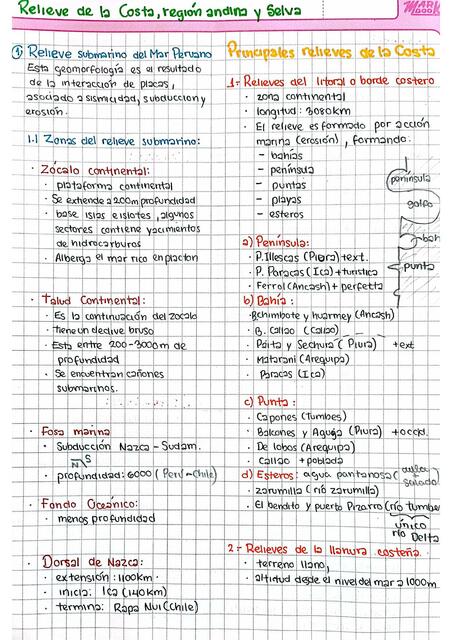 Relieve de la Costa, región andina y Selva
MARK
BOOK
① Relieve submarino del Mar Peruano
Esta geomorfología es el resultado
de la interacción de placas,
asociado a sismicidad, subduccion y
erosión.
1.1 Zonas del relieve submarino:
· Zócalo continental:
· plataforma continental
· Se extiende a 200m profundidad
· base islas e islotes, algunos
sectores contiene yacimientos
de hidrocarburos
· Alberga el mar rico en plancton
· Talud Continental:
· Es la continuación del zocalo
· tiene un declive bruso
· Esta entre 200-3000m de
profundidad
· Se encuentran cañones
submarinos.
· Fosa marina
· Subducción Nazca - Sudam.
N S
· profundidad: 6000 (Perú-Chile)
· Fondo Oceánico:
· menos profundidad
· Dorsal de Nazca:
· extensión: 1100km ·
· inicia: Ica (140km)
· termina: Rapa Nui (Chile)
Principales relieves de la Costa
1.- Relieves del litoral o borde costero
· zona continental
· longitud: 3080km
· El relieve es formado por acción
marina (erosión), formando:
- bahías
- península
- puntas
- playas
- esteros
península
golfo
bah
punta
a) Península:
· P. Illescas (Piura) + ext.
· P. Paracas (Ica) + turística
· Ferrol (Ancash) + perfecta
b) Bahía:
· B. chimbote y huarmey (Ancash)
· B. Callao (Callao)
· Paita y Sechura (Piura) + ext
· Matarani (Arequipa)
· Paracas (Ica)
c) Punta:
· Capones (Tumbes)
· Balcones y Aguja (Piura) + occid.
· De lobos (Arequipa)
· Callao + poblada
d) Esteros: agua pantanosa (dulce + salado
· zarumilla (río zarumilla)
· El bendito y puerto Pizarro (río tumbe
único
río Delta
2.- Relieves de la llanura costeña.
· terreno llano,
· altitud desde el nivel del mar a 1000m